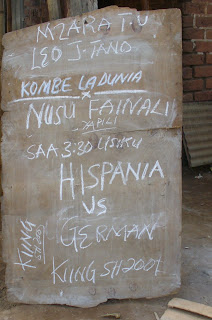 MZARA T.U
LEO J.TANO
KOMBE LA DUNIA
NUSU FAINALI
ZAPILI
SAA 3:30 USIKU
HISPANIA
VS
GERMAN
KIING SH 200/
KIING